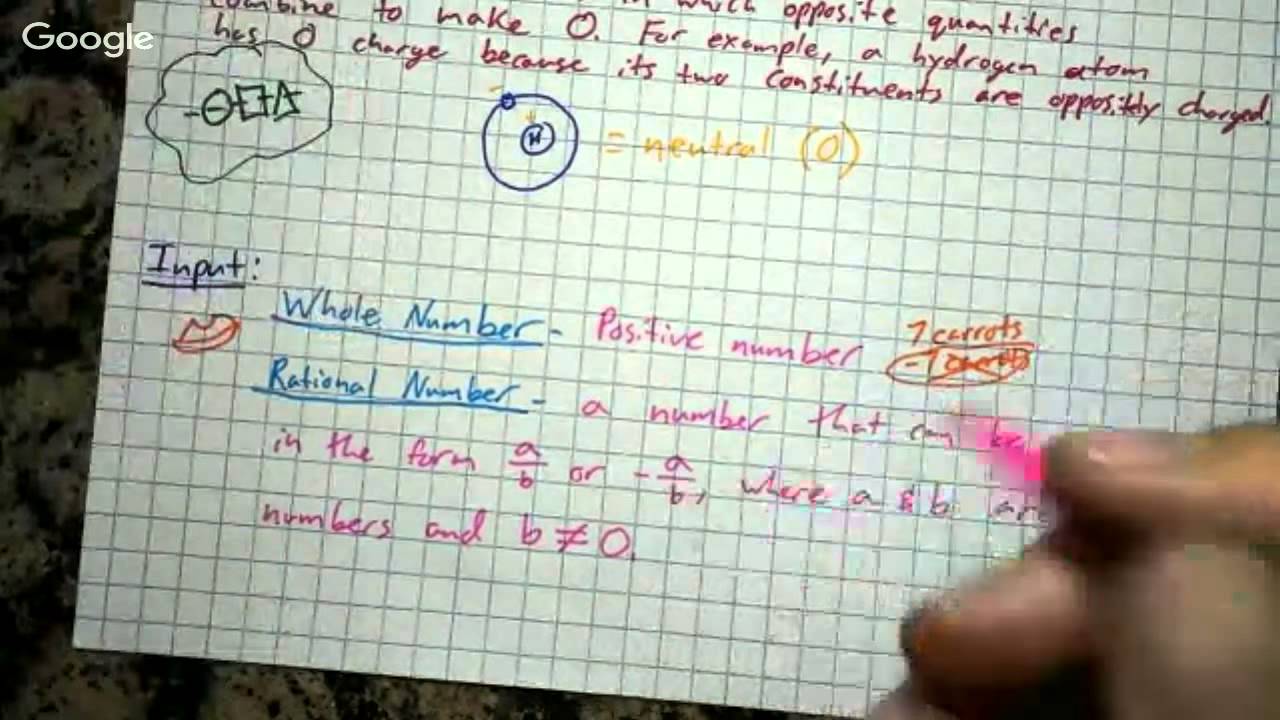 Google
which opposite quantities
combine to make 0. For example, a hydrogen atom
has 0 charge because its two constituents are oppositly charged.
= neutral (0)
Input:
Whole Number - Positive number
7 carrots
Rational Number - a number that can be
in the form a/b or -a/b, where a & b are
numbers and b ≠ 0.